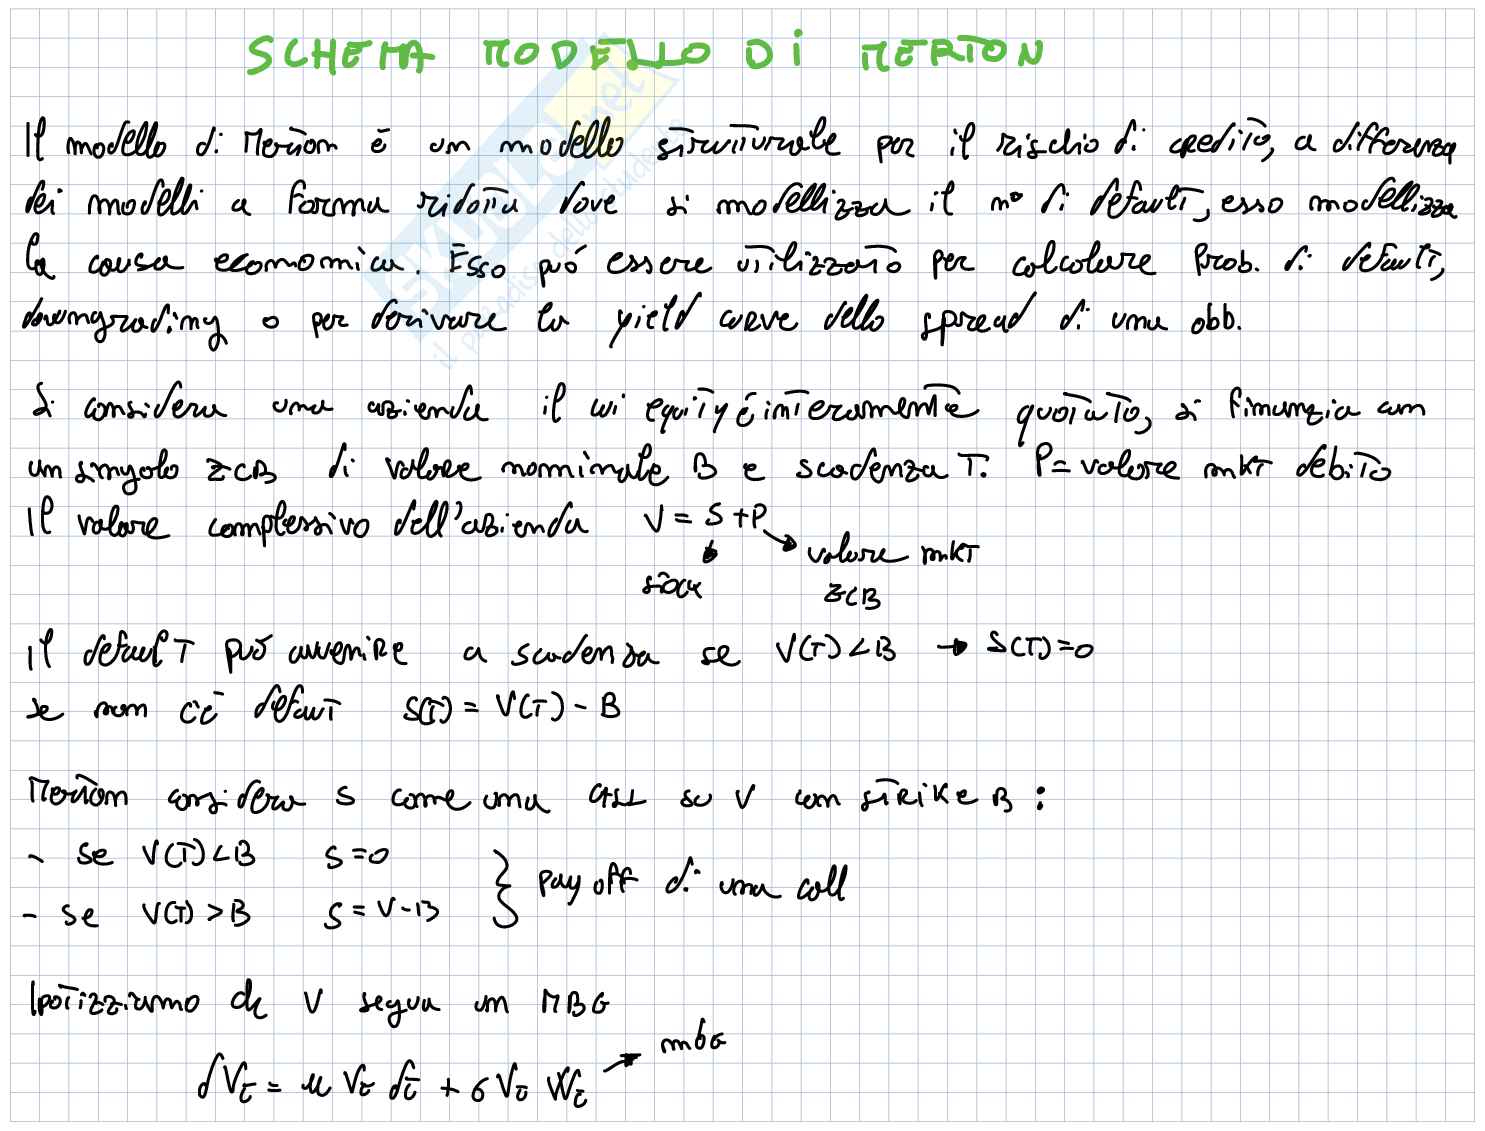 SCHEMA MODELLO DI MERTON
Il modello di Merton è un modello strutturale per il rischio di credito, a differenza
dei modelli a forma ridotta dove si modellizza il n° di default, esso modellizza
la causa economica. Esso può essere utilizzato per calcolare prob. di default,
downgrading o per derivare la yield curve dello spread di una obb.
Si considera una azienda il cui equity è interamente quotato, si finanzia con
un singolo ZCB di valore nominale B e scadenza T. P= valore mkt debito
Il valore complessivo dell'azienda V = S + P
valore mkt
stock ZCB
Il default può avvenire a scadenza se V(T) < B → S(T)=0
se non c'è defaut S(T) = V(T) - B
Merton considera S come una CALL su V con strike B :
- se V(T) < B S = 0
} pay off di una call
- se V(T) > B S = V - B
Ipotizziamo che V segua un MBG
mbG
dVt = μ Vt dt + σ Vt Wt
SKUOLA.net
il paradiso dello studente